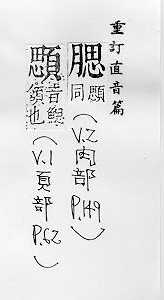 重訂直音篇
腮 顋同 (V.2 肉部 P.149)
顋 音鰓頷也 (V.1 頁部 P.62)